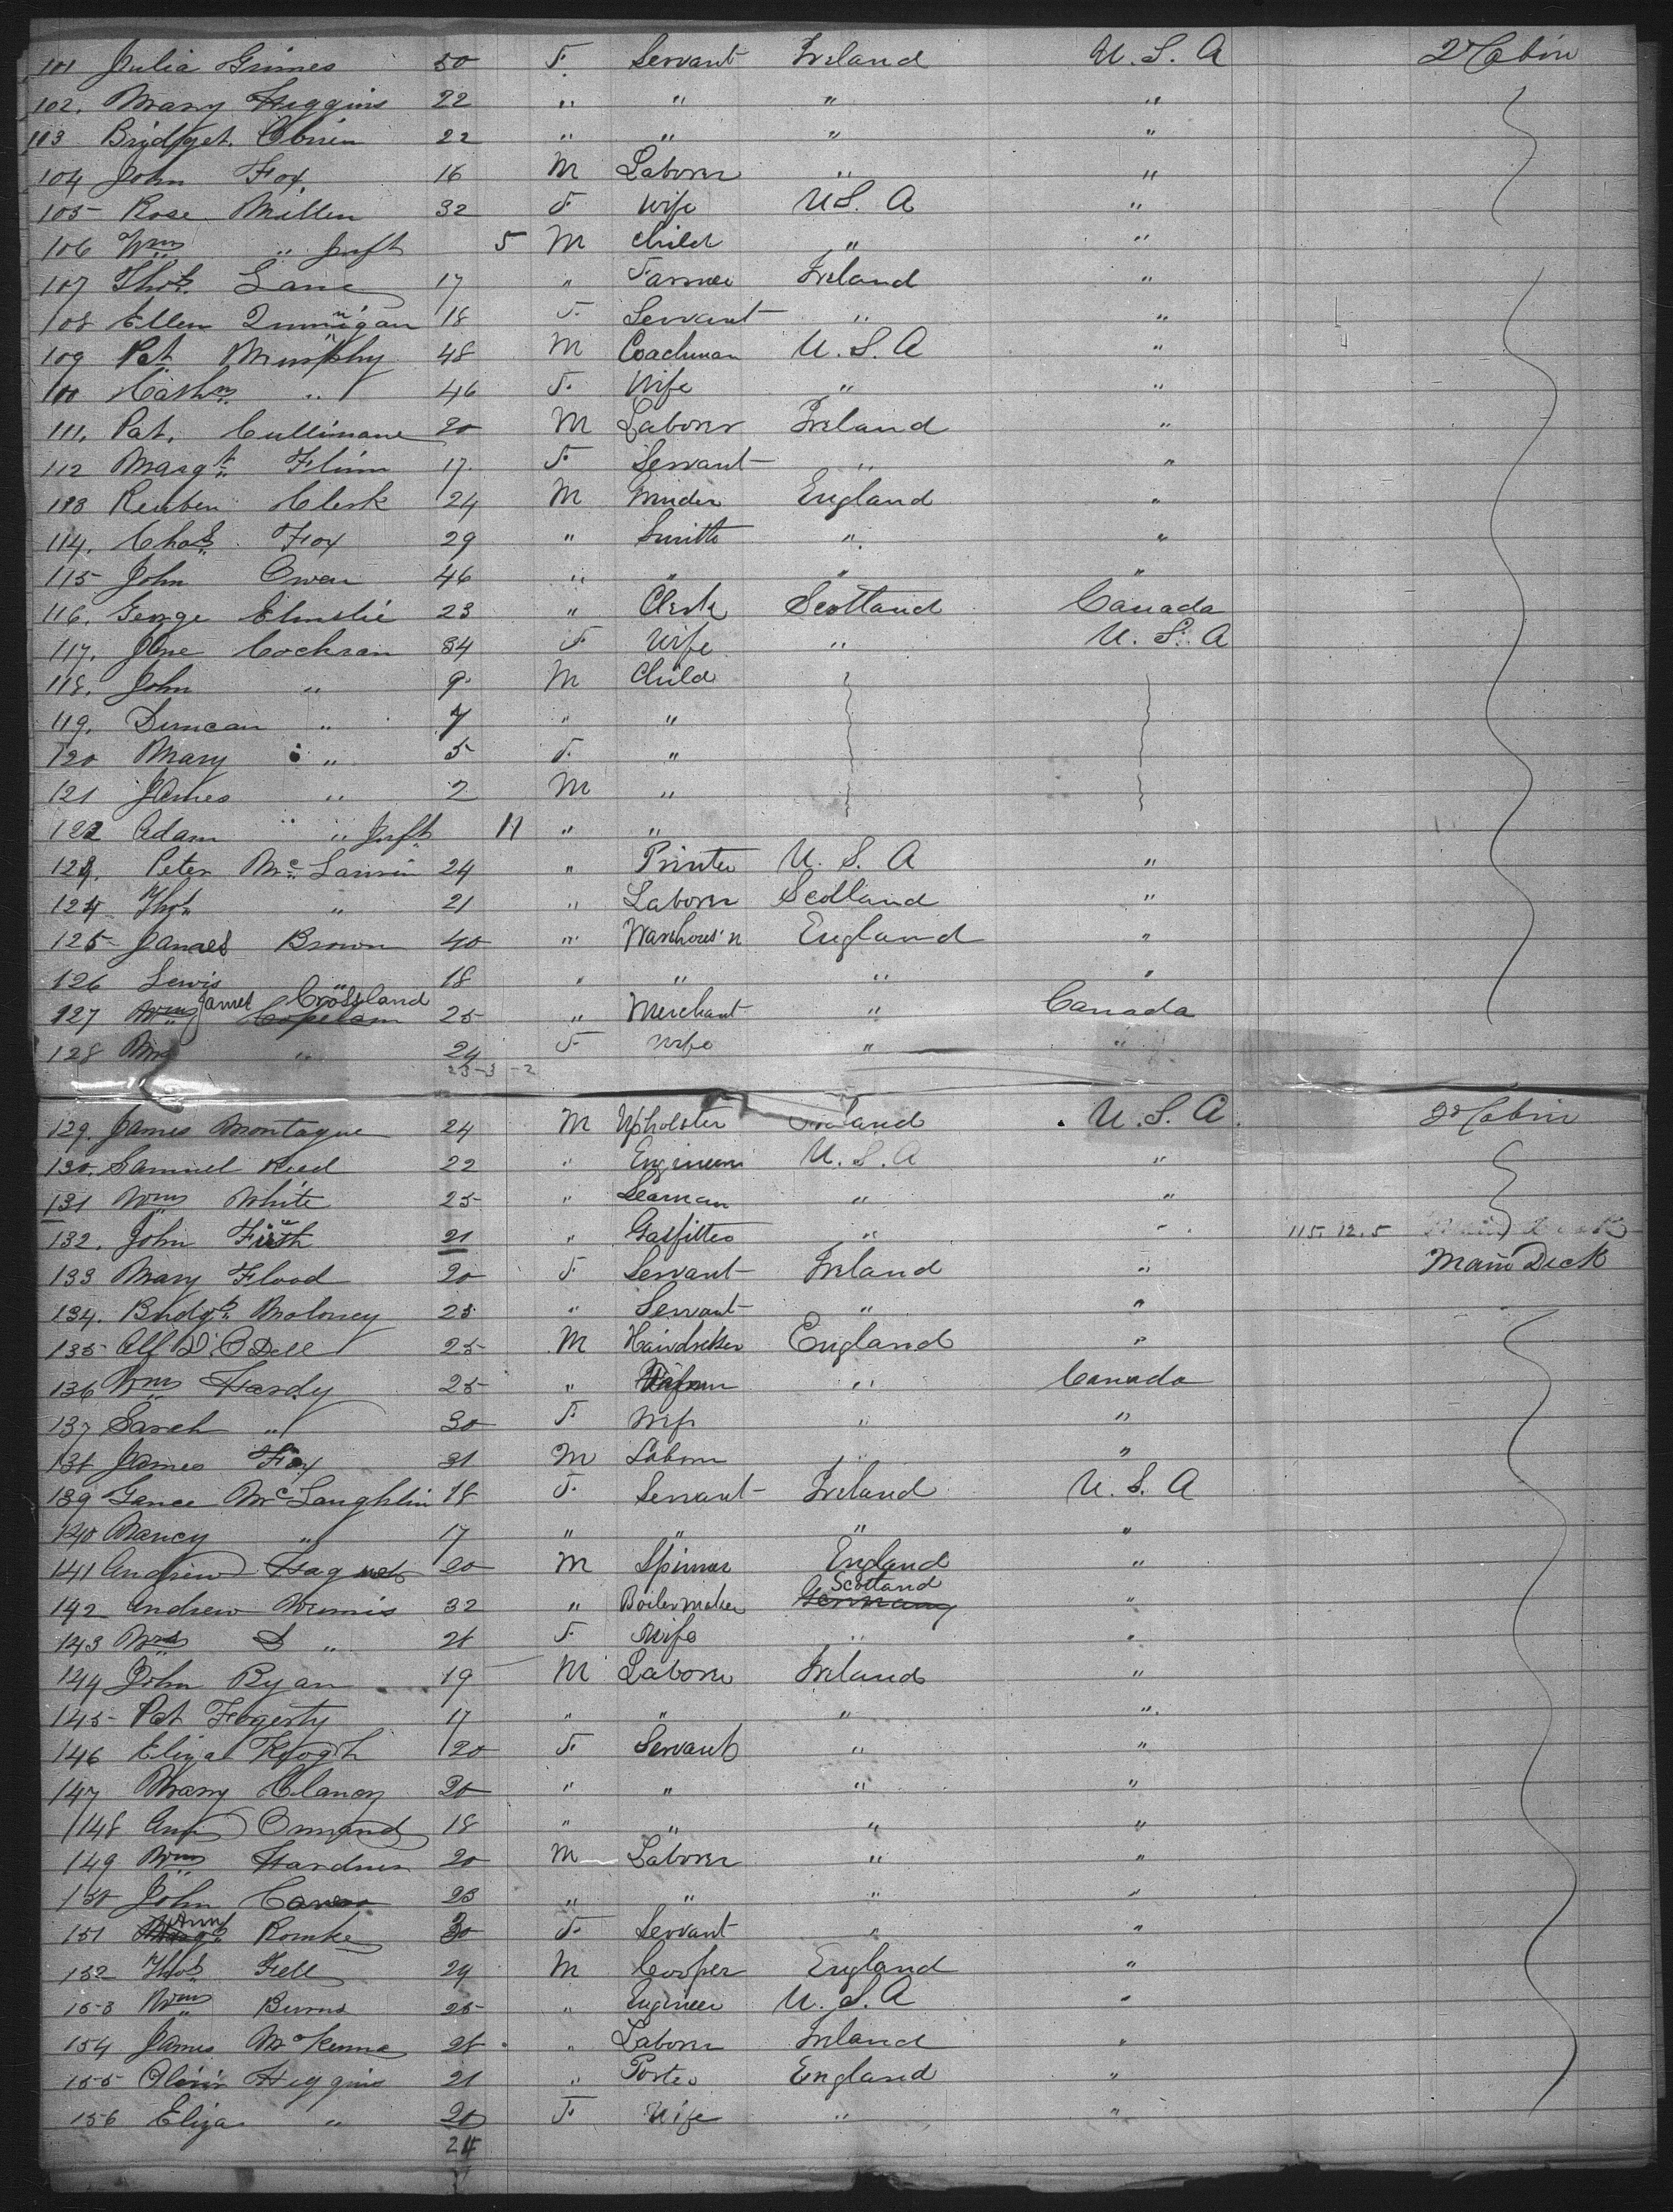 101 Julia Grimes 50 F. Servant Ireland U. S. A 2d Cabin
102. Mary Higgins 22 " " " "
103 Bridget Obrien 22 " " " "
104 John Fox. 16 M Laborer " "
105 Rose Millen 32 F Wife U.S. A "
106 Wm " Inft 5 M Child " "
107 Thos. Lane 17 " Farmer Ireland "
108 Ellen Dunnigan 18 F. Servant " "
109 Pat Murphy 48 M Coachman U. S. A "
110 Cathn " 46 F. Wife " "
111. Pat. Cullinane 20 M Laborer Ireland "
112 Margt Flinn 17. F Servant " "
113 Reuben Clerk 24 M Minder England "
114. Chas. Fox 29 " Smith " "
115 John Owen 46 " " " "
116. George Elmslie 23 " Clerk Scotland Canada
117. Jane Cochran 34 F Wife " U. S. A
118. John " 9 M Child
119. Duncan " 7 " "
120 Mary " 5 F. "
121 James " 2 M "
122 Adam " Inft 11 " "
123. Peter Mc Larrin 24 " Printer U. S. A "
124 Thos " 21 " Laborer Scotland "
125 James Brown 40 " Warehous'n England "
126 Lewis " 18 " " " "
James Crossland
127 Wm 25 " Merchant " Canada
128 Mrs " 24 F Wife " "
23-3-2
129. James Montague 24 M Upholster Ireland U. S. A. 2d Cabin
130. Samuel Reed 22 " Engineer U. S. A "
131 Wm White 25 " Seaman " "
132. John Firth 21 " Gasfitter " " 115. 12. 5
133 Mary Flood 20 F. Servant Ireland " Main Deck
134. Bridgt Moloney 23 " Servant " "
135 Alf. D. ODell 25 M Hairdresser England "
136 Wm Hardy 25 " " Canada
137 Sarah " 30 F. Wife " "
138 James Fox 31 M Laborer " "
139 Mc Laughlin 18 F. Servant Ireland U. S. A
140 Nancy " 17 " " " "
141 Andrew 20 M Spinner England "
Scotland
142 Andrew Wemis 32 " Boilermaker Germany "
143 Mrs " F Wife " "
144 John Ryan 19 M Laborer Ireland "
145 Pat Fogerty 17 " " " "
146 Eliza Keogh 20 F. Servant " "
147 Mary Clancy 20 " " " "
148 Ann Ormand 18 " " " "
149 Wm 20 M Laborer " "
150 John 23 " " " "
Ann
151 F. Servant " "
152 Thos Fell 29 M Cooper England "
153 Wm Burns 25 " Engineer U. S. A "
154 James McKenna 28 " Laborer Ireland "
155 Higgins 21 " Porter England "
156 Eliza " 20 F Wife " "
24